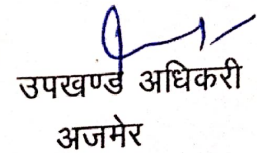 उपखण्ड अधिकरी
अजमेर